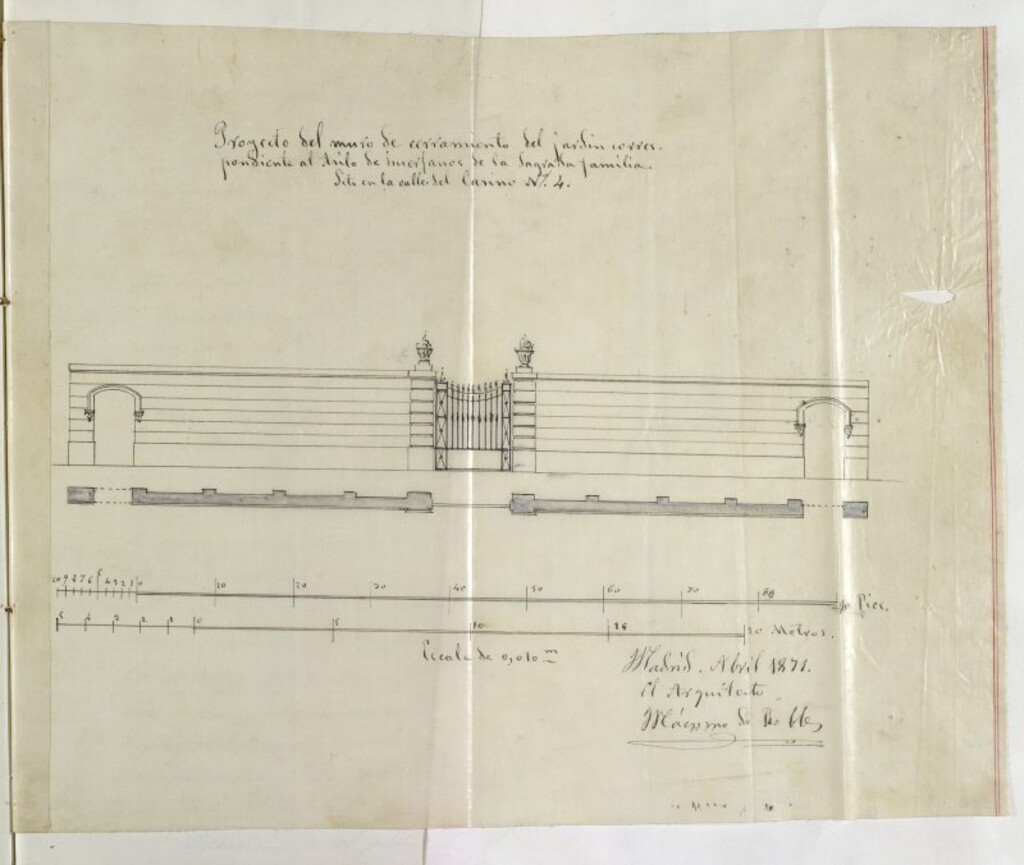 Proyecto del muro de cerramiento del jardin corres-
pondiente al Asilo de huerfanos de la Sagrada familia.
Sito en la calle del Casino Nº 4.
10 9 8 7 6 5 4 3 2 1 0 10 20 30 40 50 60 70 80 90 Pies.
5 4 3 2 1 0 5 10 15 20 Metros.
Escala de 0,010 m
Madrid. Abril 1871.
El Arquitecto
Máximo de Robles